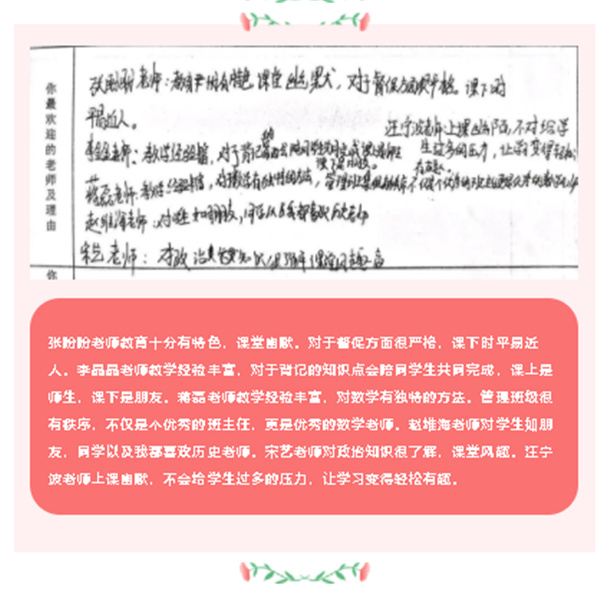 你最欢迎的老师及理由
张盼盼老师：教育十分有特色，课堂幽默，对于督促方面很严格。课下时
平易近人。
汪宁波老师上课幽默，不对给学
生过多的压力，让学习变得轻松
有趣。
李晶晶老师：教学经验丰富，对于背记
蒋磊老师：教学经验丰富，对数学有独特的方法，管理班级很有秩序
赵堆海老师：对学生如朋友，同学以及我都喜欢历史老师
宋艺老师：对政治知识很了解，课堂风趣
你
张盼盼老师教育十分有特色，课堂幽默。对于督促方面很严格，课下时平易近
人。李晶晶老师教学经验丰富，对于背记的知识点会陪同学生共同完成，课上是
师生，课下是朋友。蒋磊老师教学经验丰富，对数学有独特的方法。管理班级很
有秩序，不仅是个优秀的班主任，更是优秀的数学老师。赵堆海老师对学生如朋
友，同学以及我都喜欢历史老师。宋艺老师对政治知识很了解，课堂风趣。汪宁
波老师上课幽默，不会给学生过多的压力，让学习变得轻松有趣。